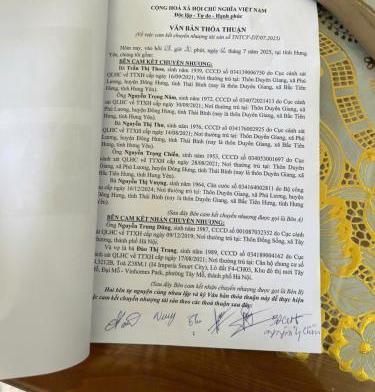 CỘNG HOÀ XÃ HỘI CHỦ NGHĨA VIỆT NAM
Độc lập - Tự do - Hạnh phúc
VĂN BẢN THỎA THUẬN
(Về việc cam kết chuyển nhượng tài sản số
Hôm nay, vào hồi giờ phút, ngày tháng 7 năm 2025, tại tỉnh Hưng
Yên, chúng tôi gồm:
BÊN CAM KẾT CHUYỂN NHƯỢNG:
Bà Trần Thị Thơm, sinh năm 1939, CCCD số do Cục cảnh sát
QLHC về TTXH cấp ngày 16/09/2021; Nơi thường trú tại: Thôn Duyên Giang, xã Phú
Lương, huyện Đông Hưng, tỉnh Thái Bình (nay là thôn Duyên Giang, xã Bắc Tiên
Hưng, tỉnh Hưng Yên).
Ông Nguyễn Trọng Năm, sinh năm 1972, CCCD số 034072021413 do Cục cảnh sát
QLHC về TTXH cấp ngày 30/08/2021; Nơi thường trú tại: Thôn Duyên Giang, xã Phú
Lương, huyện Đông Hưng, tỉnh Thái Bình (nay là thôn Duyên Giang, xã Bắc Tiên
Hưng, tỉnh Hưng Yên).
Bà Nguyễn Thị Thu, sinh năm 1976, CCCD số do Cục cảnh sát
QLHC về TTXH cấp ngày 14/08/2021; Nơi thường trú tại: Thôn Duyên Giang, xã Phú
Lương, huyện Đông Hưng, tỉnh Thái Bình (nay là thôn Duyên Giang, xã Bắc Tiên
Hưng, tỉnh Hưng Yên).
Ông Nguyễn Trọng Chiến, sinh năm 1953, CCCD số do Cục
cảnh sát QLHC về TTXH cấp ngày 28/08/2021; Nơi thường trú tại: Thôn Duyên
Giang, xã Phú Lương, huyện Đông Hưng, tỉnh Thái Bình (nay là thôn Duyên Giang, xã
Bắc Tiên Hưng, tỉnh Hưng Yên).
Bà Nguyễn Thị Vượng, sinh năm 1964, Căn cước số do Bộ công
an cấp ngày 16/12/2024; Nơi thường trú tại: Thôn Duyên Giang, xã Bắc Tiên Hưng, tỉnh
Hưng Yên.
(Sau đây Bên cam kết chuyển nhượng được gọi là Bên A)
BÊN CAM KẾT NHẬN CHUYỂN NHƯỢNG:
Ông Nguyễn Trung Dũng, sinh năm 1987, CCCD số 001087032352 do Cục cảnh
sát QLHC về TTXH cấp ngày 09/12/2019; Nơi thường trú tại: Thôn Đồng Sống, xã
thành phố Hà Nội.
Và vợ là bà Đào Thị Trang, sinh năm 1989, CCCD số do Cục cảnh
sát QLHC về TTXH cấp ngày 17/08/2021; Nơi thường trú tại: Căn hộ chung cư số
Toà Z38M.1 (I4 Imperia Smart City), Lô đất F4-CH05, Khu đô thị mới Tây
Mỗ, Đại Mỗ - Vinhomes Park, phường Tây Mỗ, thành phố Hà Nội.
(Sau đây Bên cam kết nhận chuyển nhượng được gọi là Bên B)
Hai bên tự nguyện cùng nhau lập và ký Văn bản thỏa thuận này để thực hiện
việc cam kết chuyển nhượng tài sản theo các thoả thuận sau đây: